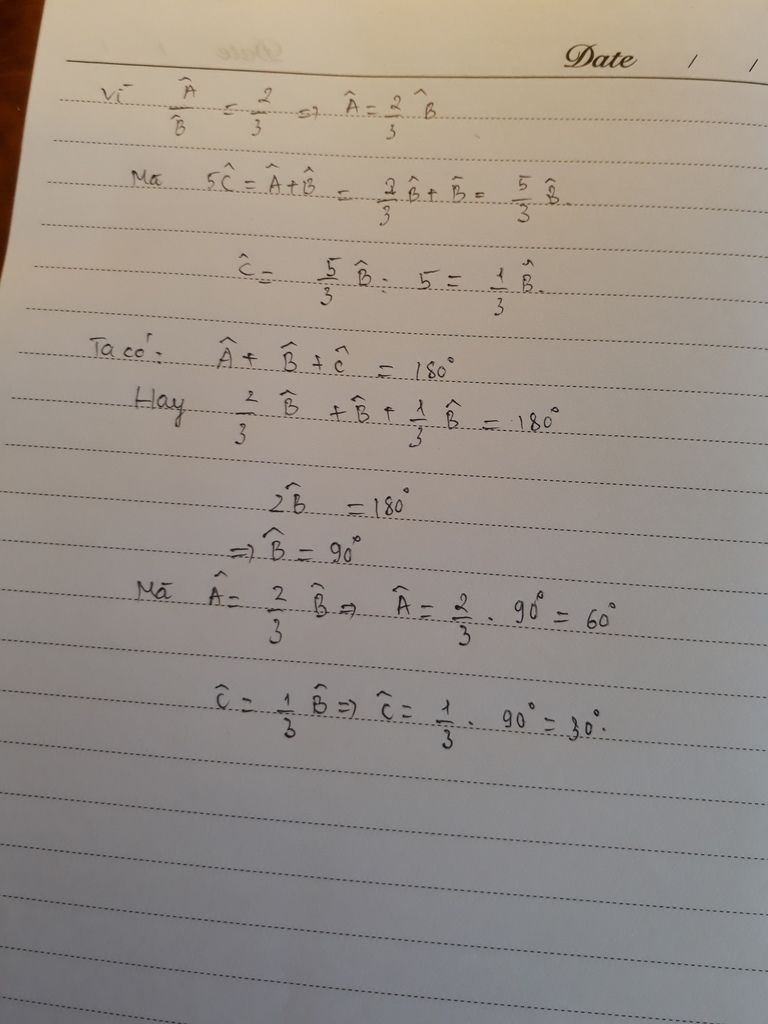 Date / /
Vì Â/B̂ = 2/3 => Â = 2/3 B̂
Mà 5Ĉ = Â + B̂ = 2/3 B̂ + B̂ = 5/3 B̂.
Ĉ = 5/3 B̂ : 5 = 1/3 B̂.
Ta có: Â + B̂ + Ĉ = 180°
Hay 2/3 B̂ + B̂ + 1/3 B̂ = 180°
2B̂ = 180°
=> B̂ = 90°
Mà Â = 2/3 B̂ => Â = 2/3 . 90° = 60°
Ĉ = 1/3 B̂ => Ĉ = 1/3 . 90° = 30°.